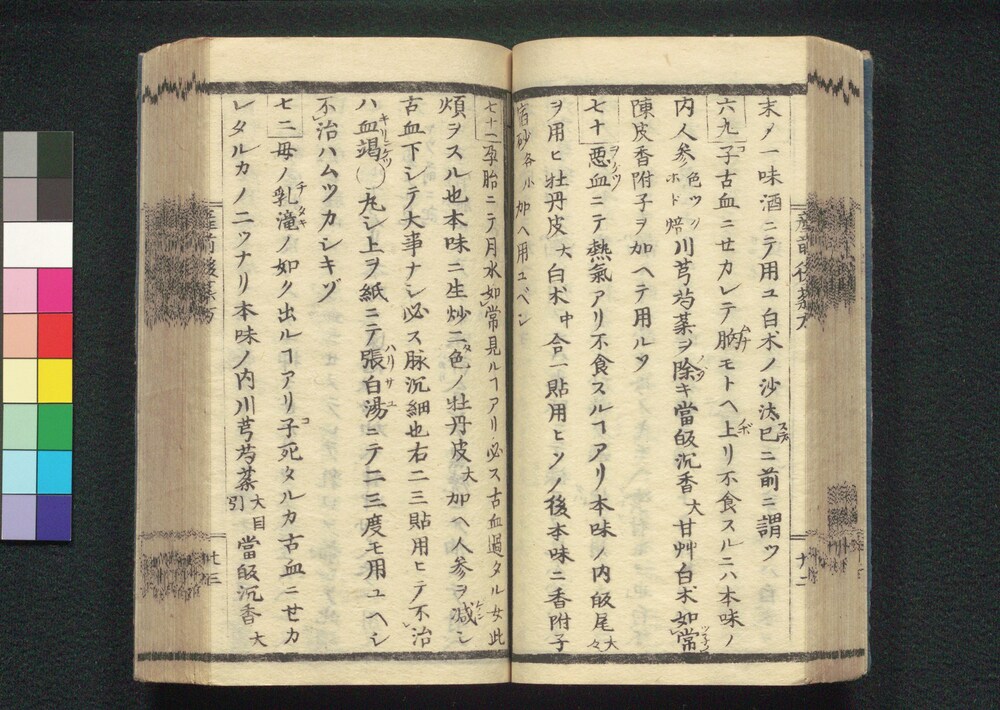 末〆一味酒ニテ用ユ白朮ノ沙汰已ニ前ニ謂ツ
六九 子古血ニセカレテ胸モトヘ上リ不食スルニハ本味ノ
内人参色ツクホド焙川芎芍薬ヲ除キ當皈沉香大甘艸白朮如常
陳皮香附子ヲ加ヘテ用ルソ
七十 悪血ニテ熱氣アリ不食スルヿアリ本味ノ内皈尾大々
ヲ用ヒ牡丹皮大白朮中合一貼用ヒソノ後本味ニ香附子
宿砂各小加ヘ用ユベシ
七十一 孕胎ニテ月水如常見ルヿアリ必ス古血過タル女此
煩ヲスル也本味ニ生炒二色ノ牡丹皮大加ヘ人参ヲ減シ
古血下シテ大事ナシ必ス脉沉細也右二三貼用ヒテ不治
ハ血竭〇丸シ上ヲ紙ニテ張白湯ニテ二三度モ用ユヘシ
不治ハムツカシキゾ
七二 母ノ乳滝ノ如ク出ルヿアリ子死タルカ古血ニセカ
レタルカノ二ツナリ本味ノ内川芎芍薬大目引當皈沉香大
産前後薬方
十二
産前後薬方
廿三